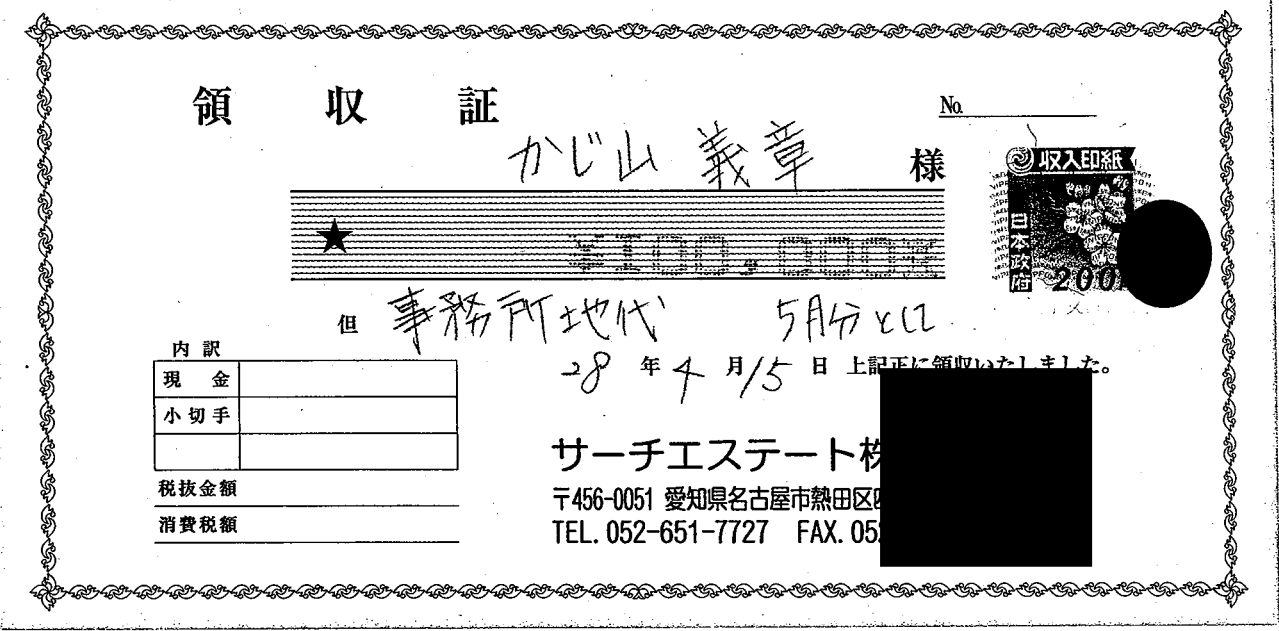 領収証
No.
かじ山 義章 様
収入印紙
日本政府
200
★ ¥100,000※
但 事務所地代 5月分として
内訳
28年4月15日 上記正に領収いたしました。
現金
小切手
サーチエステート株
税抜金額
〒456-0051 愛知県名古屋市熱田区
消費税額
TEL. 052-651-7727 FAX. 052